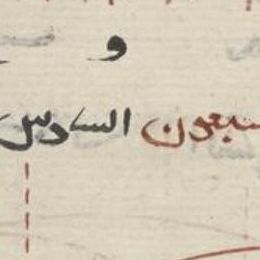 و
سبعون السادس